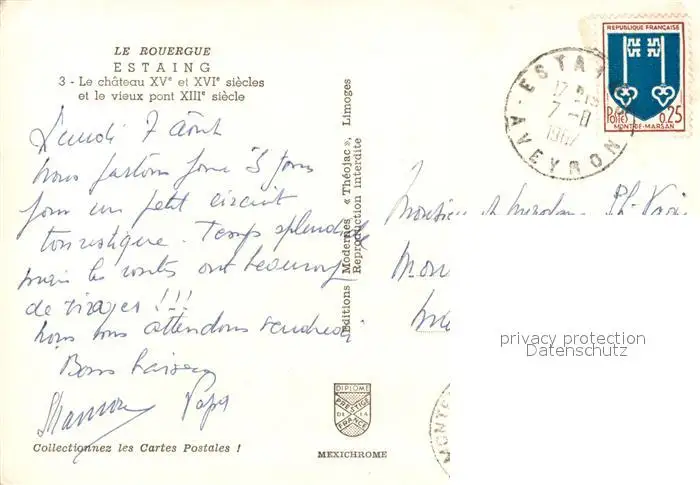 LE ROUERGUE
ESTAING
3 - Le château XVe et XVIe siècles
et le vieux pont XIIIe siècle
Lundi 7 Août
Nous partons pour 3 jours
pour un petit circuit
touristique. Temps splendide
mais les routes ont beaucoup
de virages !!!
Nous vous attendons vendredi.
Bons baisers
Papa
Collectionnez les Cartes Postales !
Editions Modernes « Théojac », Limoges
Reproduction Interdite
DIPLOME
PRESTIGE
DE LA
FRANCE
MEXICHROME
ESTAING
17 H15
7 -8
1967
AVEYRON
REPUBLIQUE FRANÇAISE
POSTES
0,25
MONT-DE-MARSAN
Monsieur et
privacy protection
Datenschutz